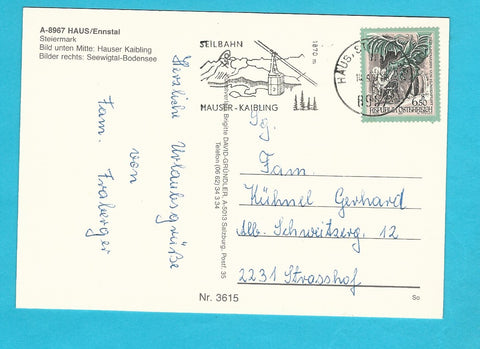 A-8967 HAUS/Ennstal
Steiermark
Bild unten Mitte: Hauser Kaibling
Bilder rechts: Seewigtal-Bodensee
Herzliche Urlaubsgrüße
von
Fam. Fraberger
Brigitte DAVID-GRÜNDLER, A-5013 Salzburg, Postf. 35
Telefon (06 62) 34 3 34
SEILBAHN
1870 m
HAUSER-KAIBLING
HAUS,
8967
6.50
REPUBLIK ÖSTERREICH
Fam.
Kühnel Gerhard
Alb. Schweitzerg. 12
2231 Strasshof
Nr. 3615
So